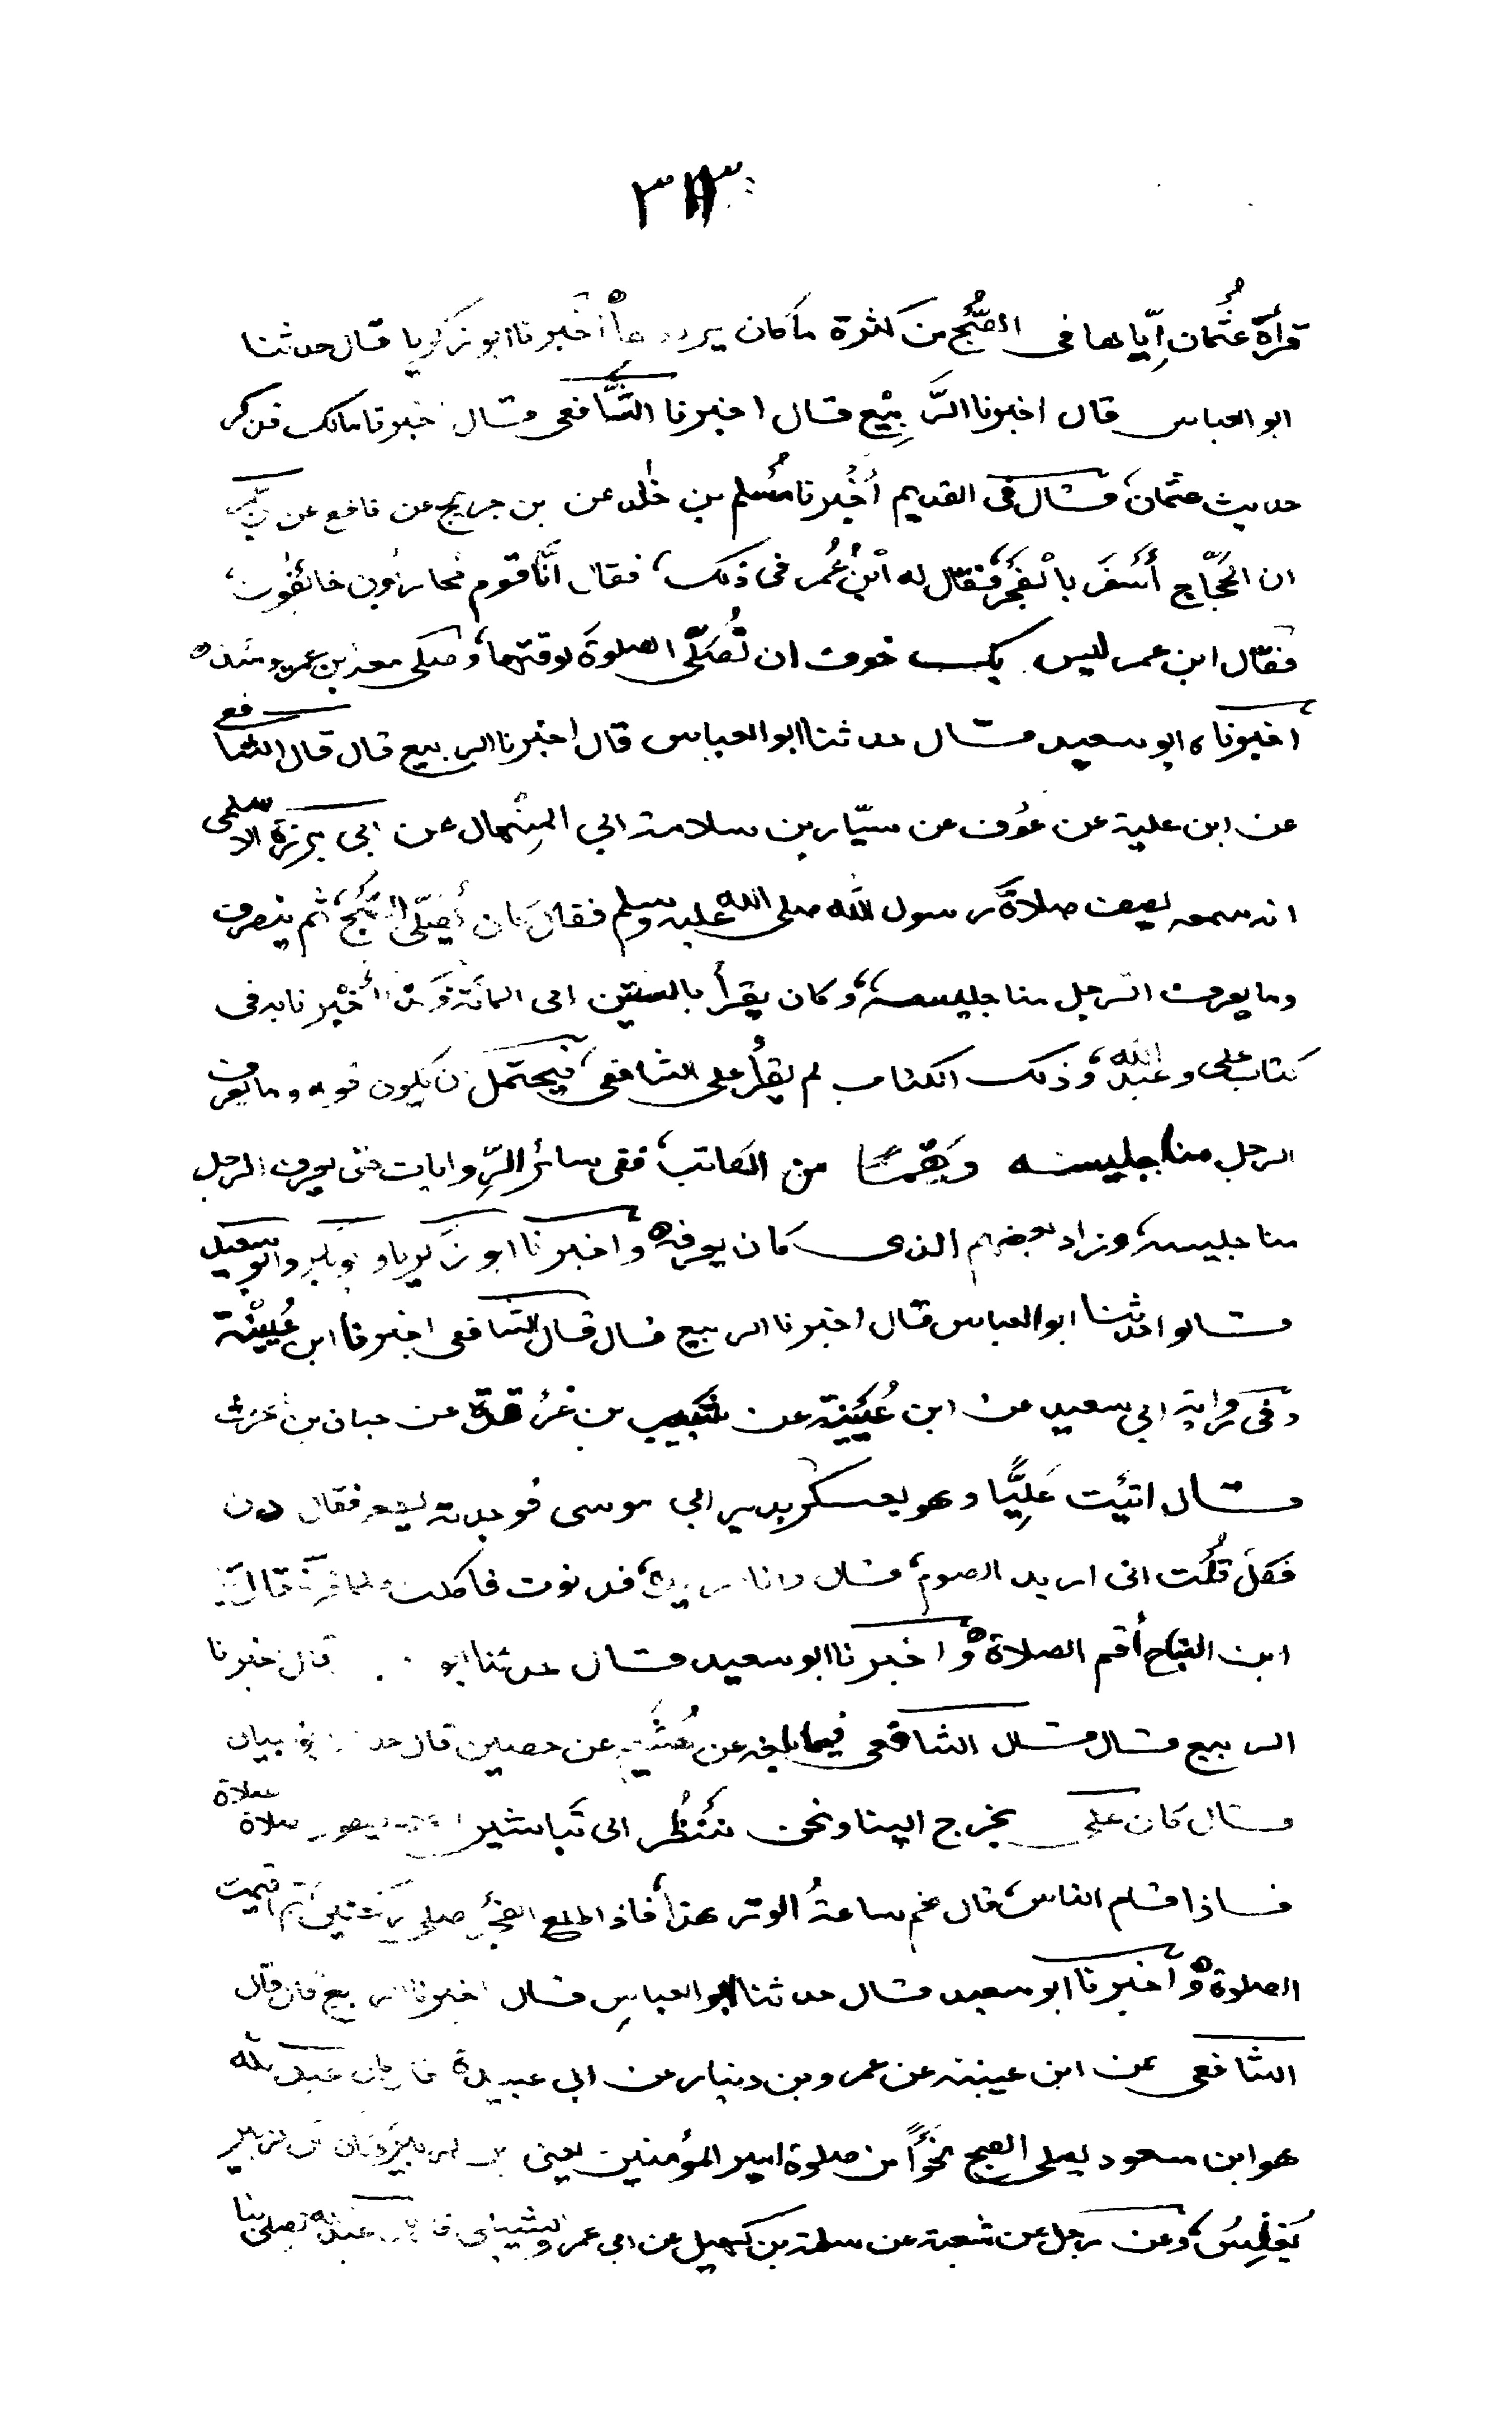 قرأة عُثمان إيّاها فى الصُّبح من كثرة ما كان يرددها أخبرنا ابو زكريا قال حدثنا
ابو العباس قال اخبرنا الرَّبِيْع قال اخبرنا الشَّافعى قال اخبرنا مالك فذكر
حديث عثمان، قال فى القديم أَخْبرنا مُسلم بن خٰلد عن بن جريج عن نافع عن
ان الحَجّاج أَسْفَر بالْفَجَر فقال له ابْنُ عُمر فى ذلك، فقال انَّا قوم محاربُون خائفُون،
فقال ابن عمر ليس بك خوف ان تُصَلّى الصلوةَ لوقتها، وصلى معه ابن عمر يومئذ
أخبرنا ابو سعيد قال حدثنا ابو العباس قال اخبرنا الربيع قال قال الشافعى
عن ابن علية عن عوْف عن سيّار بن سلامة ابى المِنْهال عن ابى برزة الاسلمى
انه سمعه يصف صلاةَ رسول الله صلى الله عليه وسلم فقال كان يُصَلّى الصُّبح، ثم ينصرف
وما يعرف الرجل منا جليسه، وكان يقرأ بالستين الى المائة أَخْبرنا به فى
كتاب على وعَبْدِ الله، وذلك الكتاب لم يقرأ على الشافعى، فيحتمل ان يكون قوله وما يعرف
الرجل منا جليسه وَهْمًا من الكاتب، ففى سائر الرِّوايات حتى يعرف الرجل
منا جليسه، وزاد بعضهم الذى كان يعرفه وأخبرنا ابو زكريا و ابو بكر وابو سعيد
قالوا حدثنا ابو العباس قال اخبرنا الربيع قال قال الشافعى اخبرنا ابن عُيَيْنة
وفى قراية ابى سعيد عن ابن عُيَيْنة عن شَبيب بن غرْقدة عن حبان بن حرث
قال اتيْت عَلِيًّا وهو يعسكر بدير ابى موسى فوجدته يطعم فقال دن
فَكل قُلْت انى اريد الصوم، قال وانا اريده، فدنوت فاكلت فلما فرغ قال يا
ابن التياح أقم الصلاة وأخبرنا ابو سعيد قال حدثنا ابو قال خبرنا
الربيع قال قال الشافعى فيما بلغه عن هُشَيْم عن حصين قال حدثنا ابو ظبيان
قال كان على يخرج الينا ونحن نَنْظُر الى تَباشير الصبح فيقول الصلاة الصلاة
فاذا قام الناس، قال نعم ساعةُ الوتر هذا، فاذا طلع الفجْر صلى ركعتين، ثم اقيمت
الصلوة وأخبرنا ابو سعيد قال حدثنا ابو العباس قال اخبرنا الربيع قال قال
الشافعى عن ابن عيينة عن عمرو بن دينار عن ابى عبيدة قال كان عبد الله
هو ابن مسعود يصلى الصبح نحوًا من صلوة امير المؤمنين يعنى بن الزبير وكان بن الزبير
يُغَلِّسُ، وعن رجل عن شعبة عن سلمة بن كهيل عن ابى عمرو الشيبانى قال كان عبد الله يصلى بنا